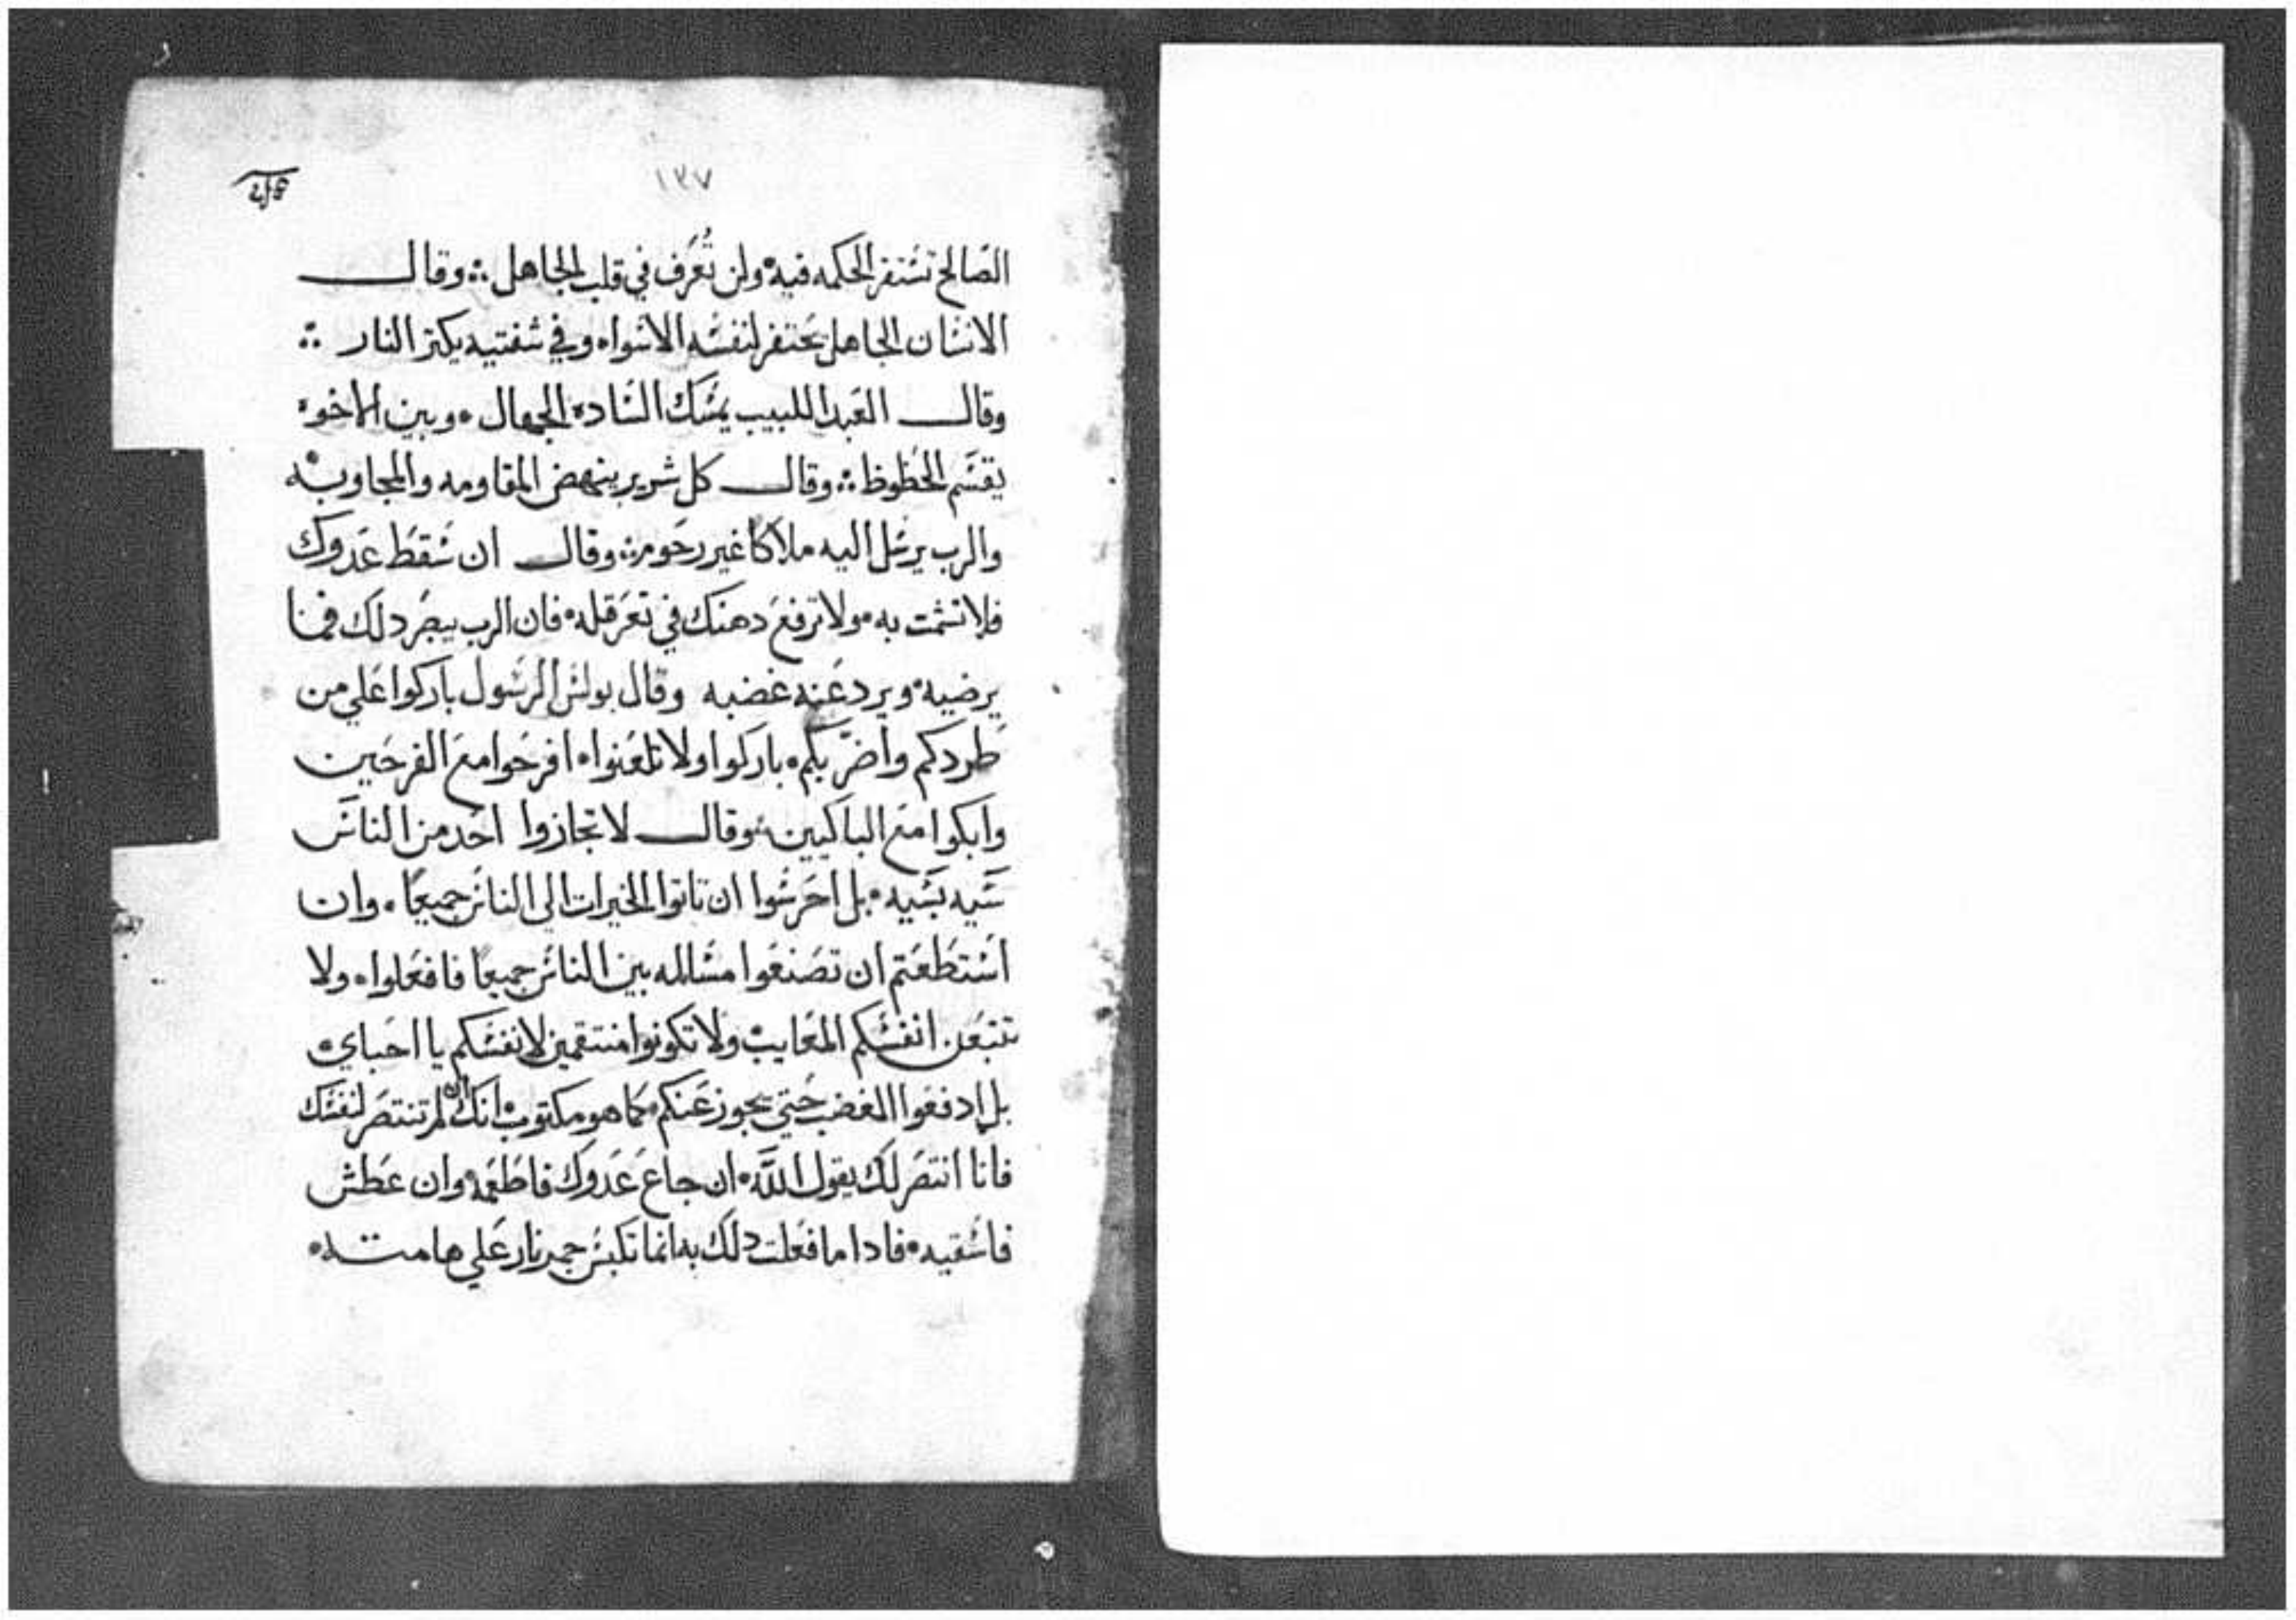 ١٣٧
الصالح تستقر الحكمه فيه ولن تُعرف في قلب الجاهل ؞ وقال
الانسان الجاهل يحتفر لنفسه الاسواه وفي شفتيه يكنز النار ؞
وقال العبد اللبيب يمسك الساده الجهال ٠ وبين الاخوه
يقسم الحظوظ ؞ وقال كل شرير ينهض المقاومه والمجاوبه
والرب يرسل اليه ملاكا غير رحوم ؞ وقال ان سقط عدوك
فلا تشمت به ٠ ولا ترفع دهنك في تعرقله ٠ فان الرب يبصر دلك فما
يرضيه ٠ ويرد عنه غضبه وقال بولس الرسول باركوا علي من
طردكم واضرّ بكم ٠ باركوا ولا تلعنوا ٠ افرحوا مع الفرحين
وابكوا مع الباكيين ؞ وقال لا تجازوا احد من الناس
سيه بسيه ٠ بل احرسوا ان تاتوا الخيرات الي الناس جميعًا ٠ وان
استطعتم ان تصنعوا مسالمه بين الناس جميعًا فافعلوا ٠ ولا
تتبعن انفسكم المعايب ولا تكونوا منتقمين لانفسكم يا احباي ٠
بل ادفعوا الغضب حتي يجوز عنكم كما هو مكتوب انك ان لم تنتصر لنفسك
فانا انتصر لك يقول اللَّه ٠ ان جاع عدوك فاطعمه وان عطش
فاسقيه ٠ فادا ما فعلت دلك به انما تكبس جمر نار علي هامته ٠